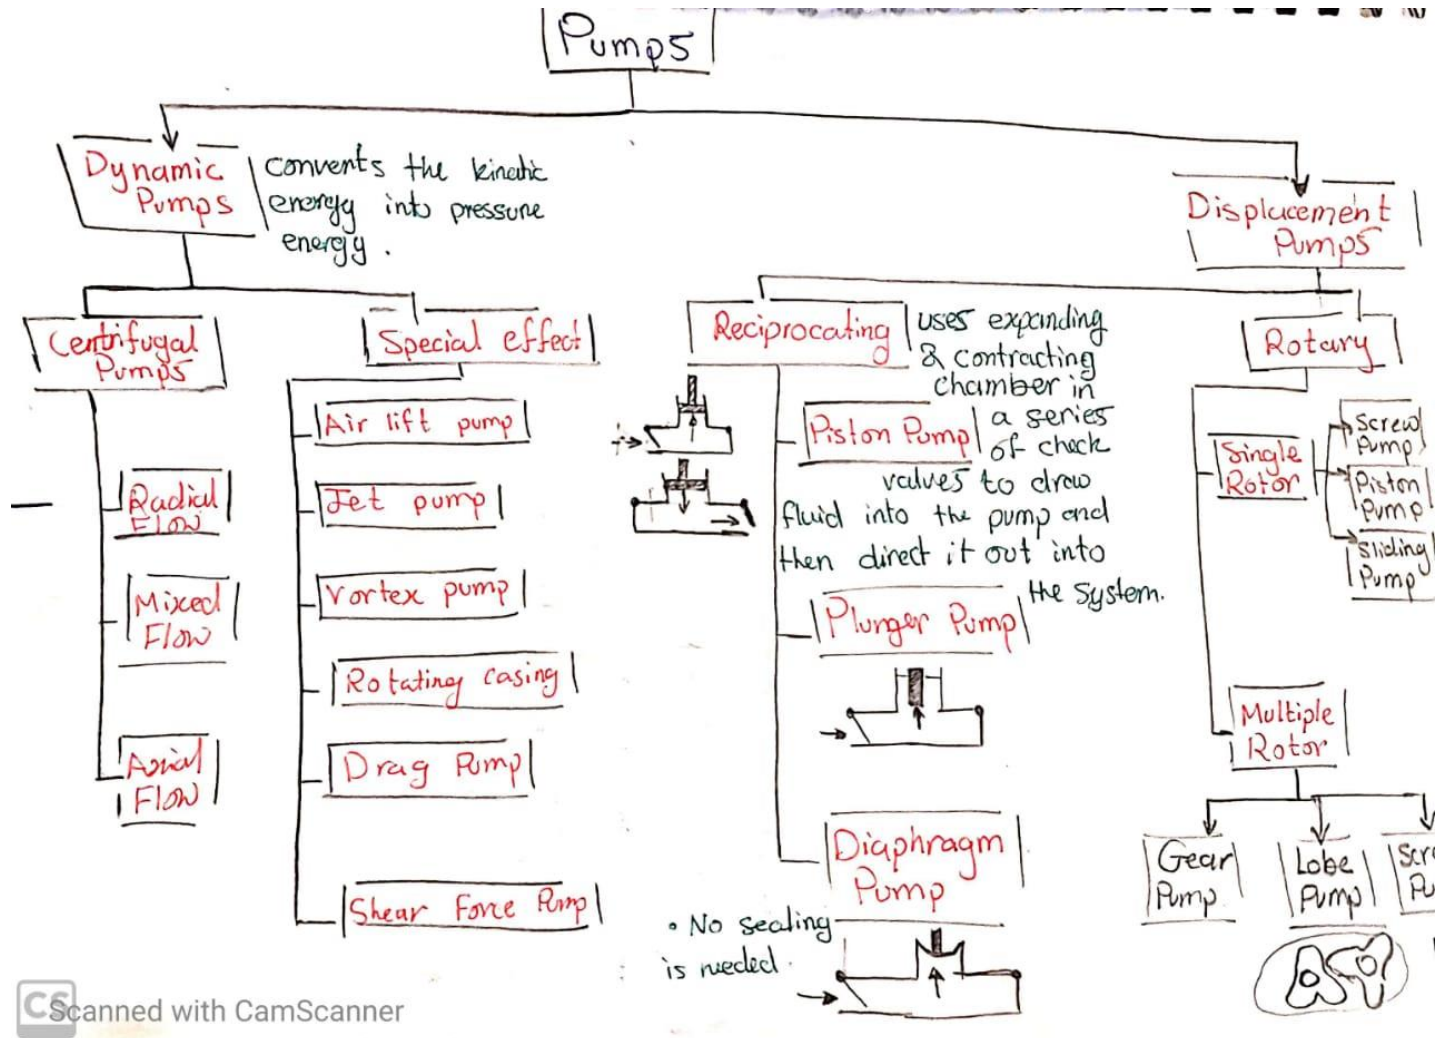 Pumps
Dynamic
Pumps
convents the kinetic
energy into pressure
energy.
Displacement
Pumps
Centrifugal
Pumps
Radial
Flow
Mixed
Flow
Axial
Flow
Special effect
Air lift pump
Jet pump
Vortex pump
Rotating casing
Drag Pump
Shear Force Pump
Reciprocating
uses expanding
& contracting
chamber in
a series
of check
values to draw
fluid into the pump and
then direct it out into
the system.
Piston Pump
Plunger Pump
Diaphragm
Pump
• No sealing
is needed.
Rotary
Single
Rotor
Screw
Pump
Piston
Pump
Sliding
Pump
Multiple
Rotor
Gear
Pump
Lobe
Pump
Scre
Pu
CS
Scanned with CamScanner